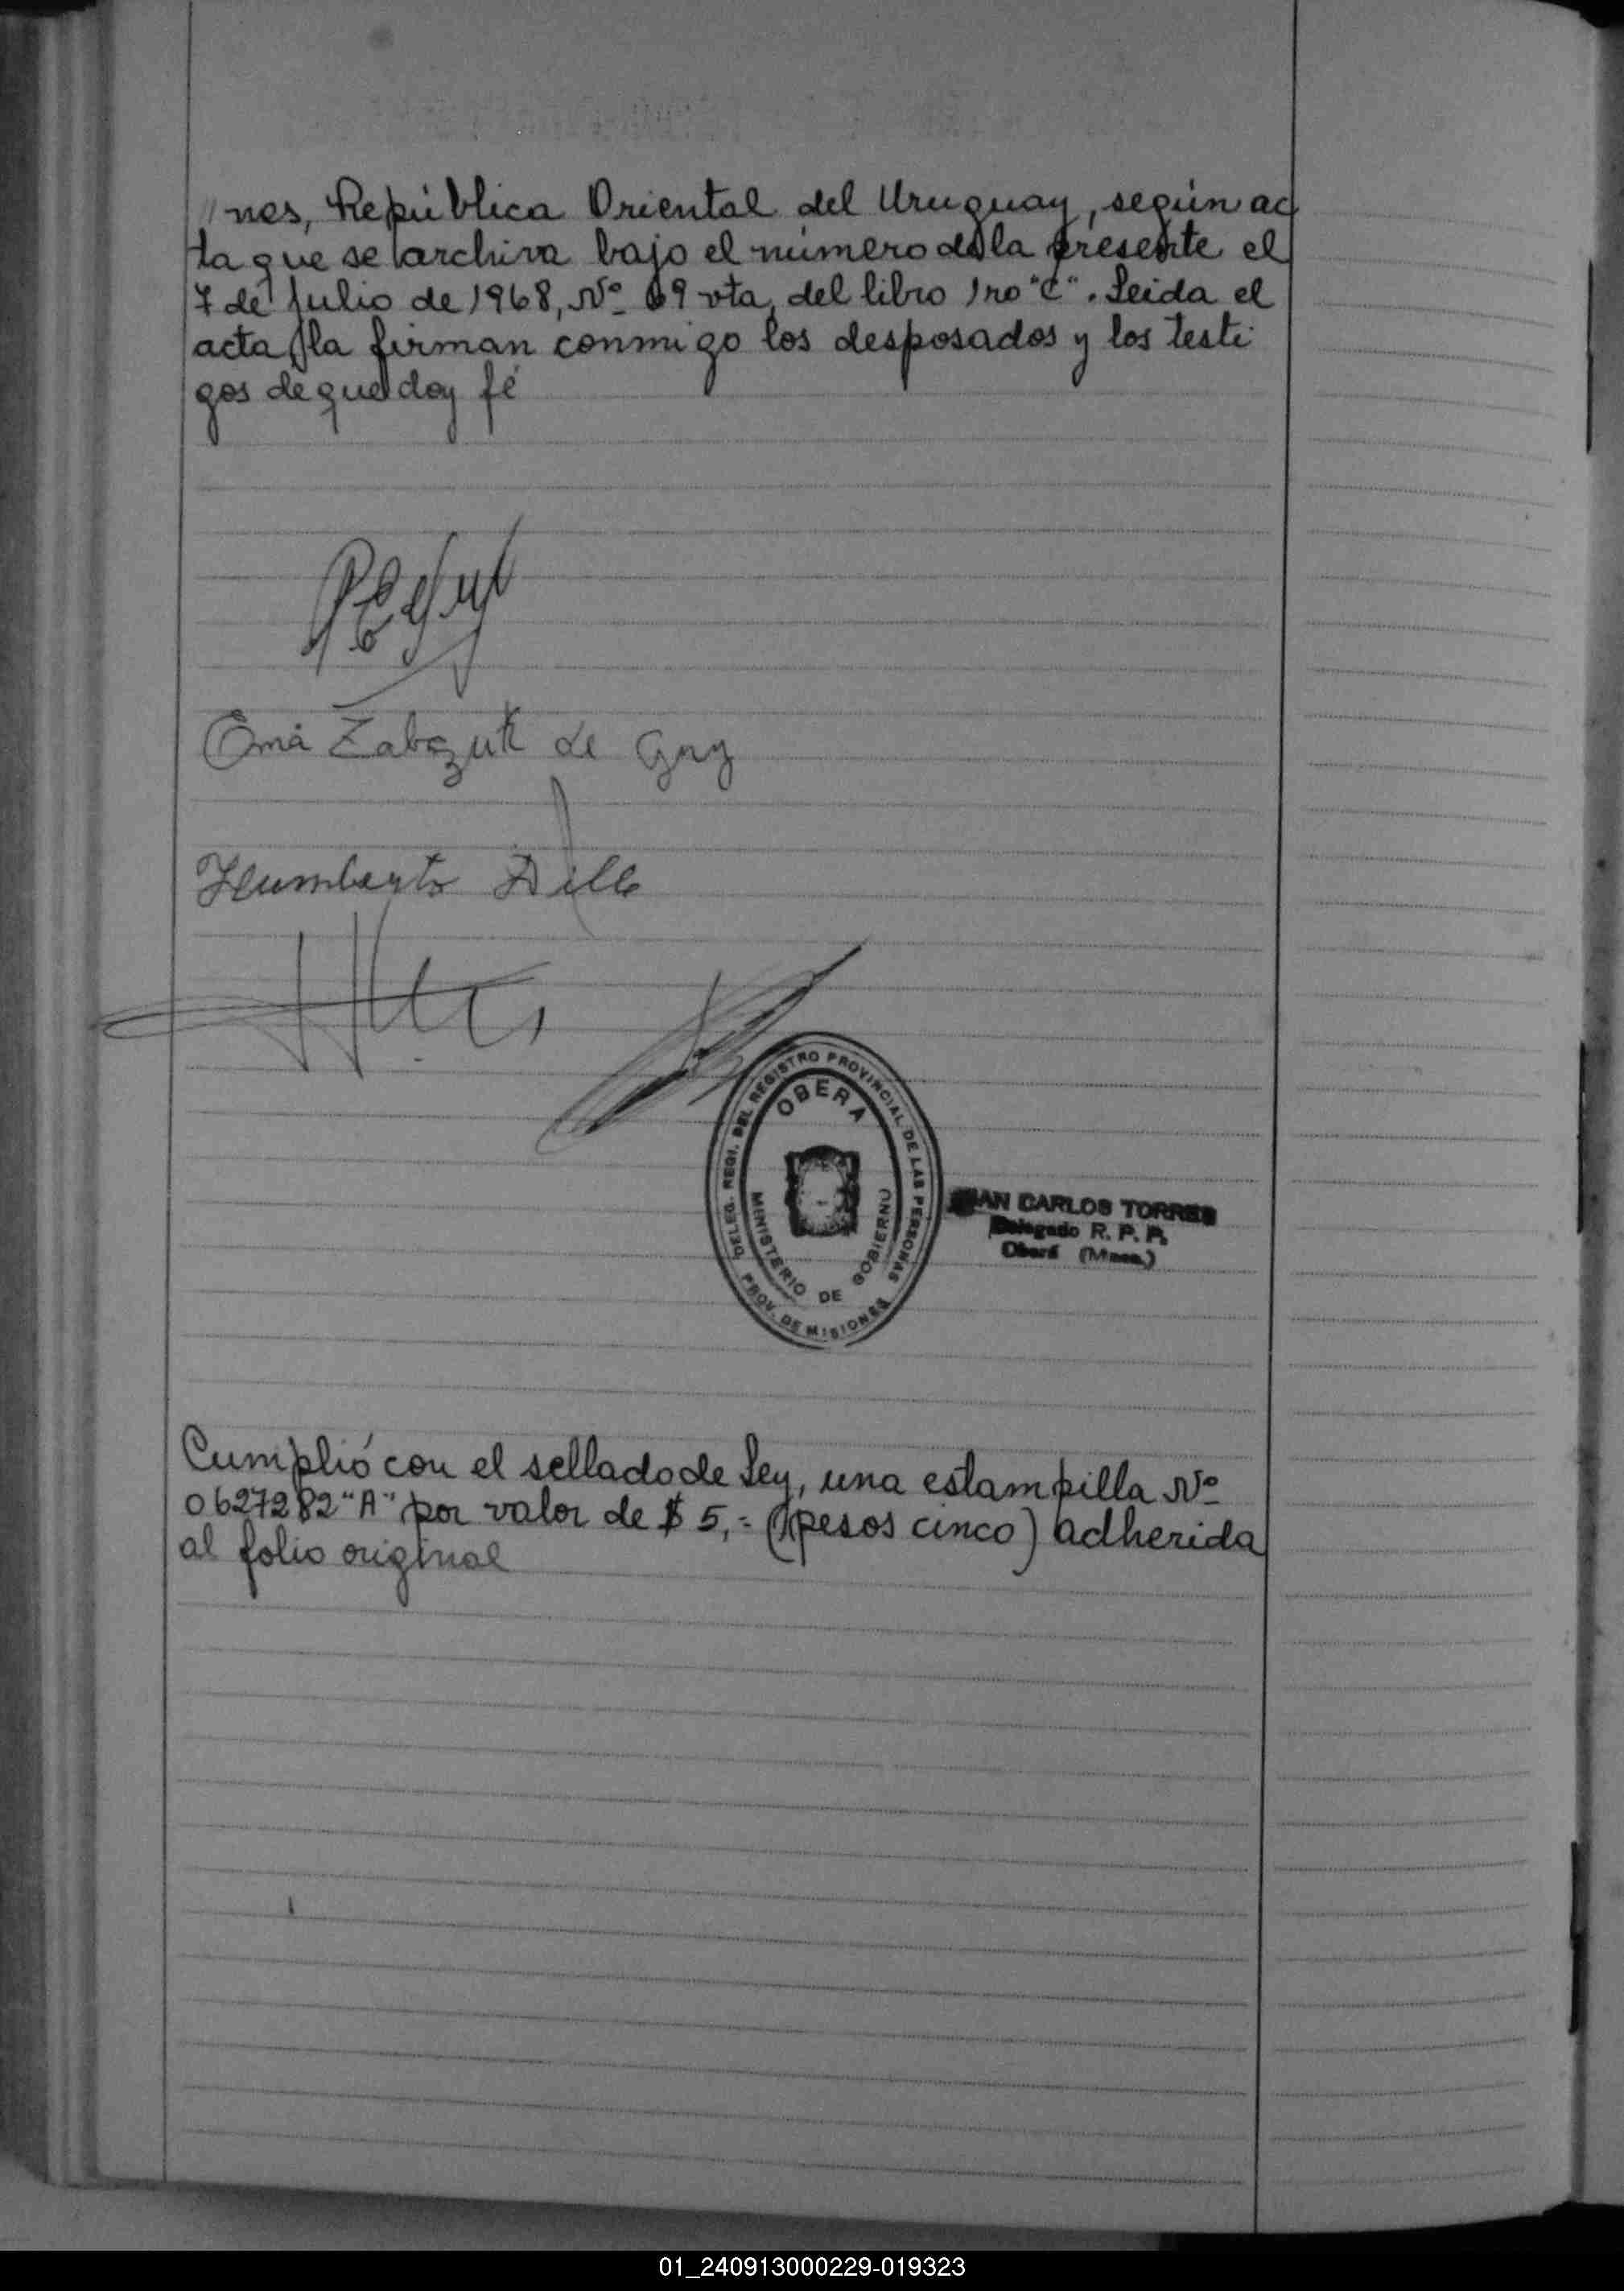 "nes, República Oriental del Uruguay, según ac
ta que se archiva bajo el número de la presente el
7 de Julio de 1968, Nº 69 vta, del libro 1ro "C". Leida el
acta, la firman conmigo los desposados y los testi
gos de que doy fé
Ema Zabczuk de Gny
Humberto Dille
DELEG. REGI. DEL REGISTRO PROVINCIAL DE LAS PERSONAS
OBERA
MINISTERIO DE GOBIERNO
PROV. DE MISIONES
JUAN CARLOS TORRES
Delegado R. P. P.
Oberá (Mnes.)
Cumplió con el sellado de Ley, una estampilla Nº
0627282 "A" por valor de $ 5,= (pesos cinco) adherida
al folio original
01_240913000229-019323